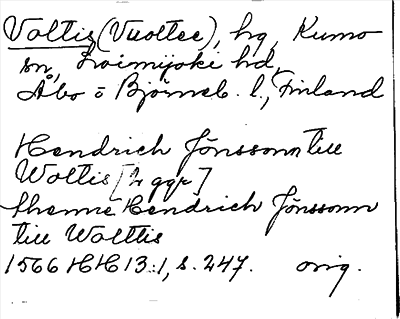 Voltis (Vuoltee), hg, Kumo
sn, Loimijoki hd,
Åbo o Björneb. l., Finland
Hendrich Jönssonn till
Woltis [2 ggr]
thenne Hendrich Jönssonn
till Wolttis
1566 HH 13:1, s. 247. orig.